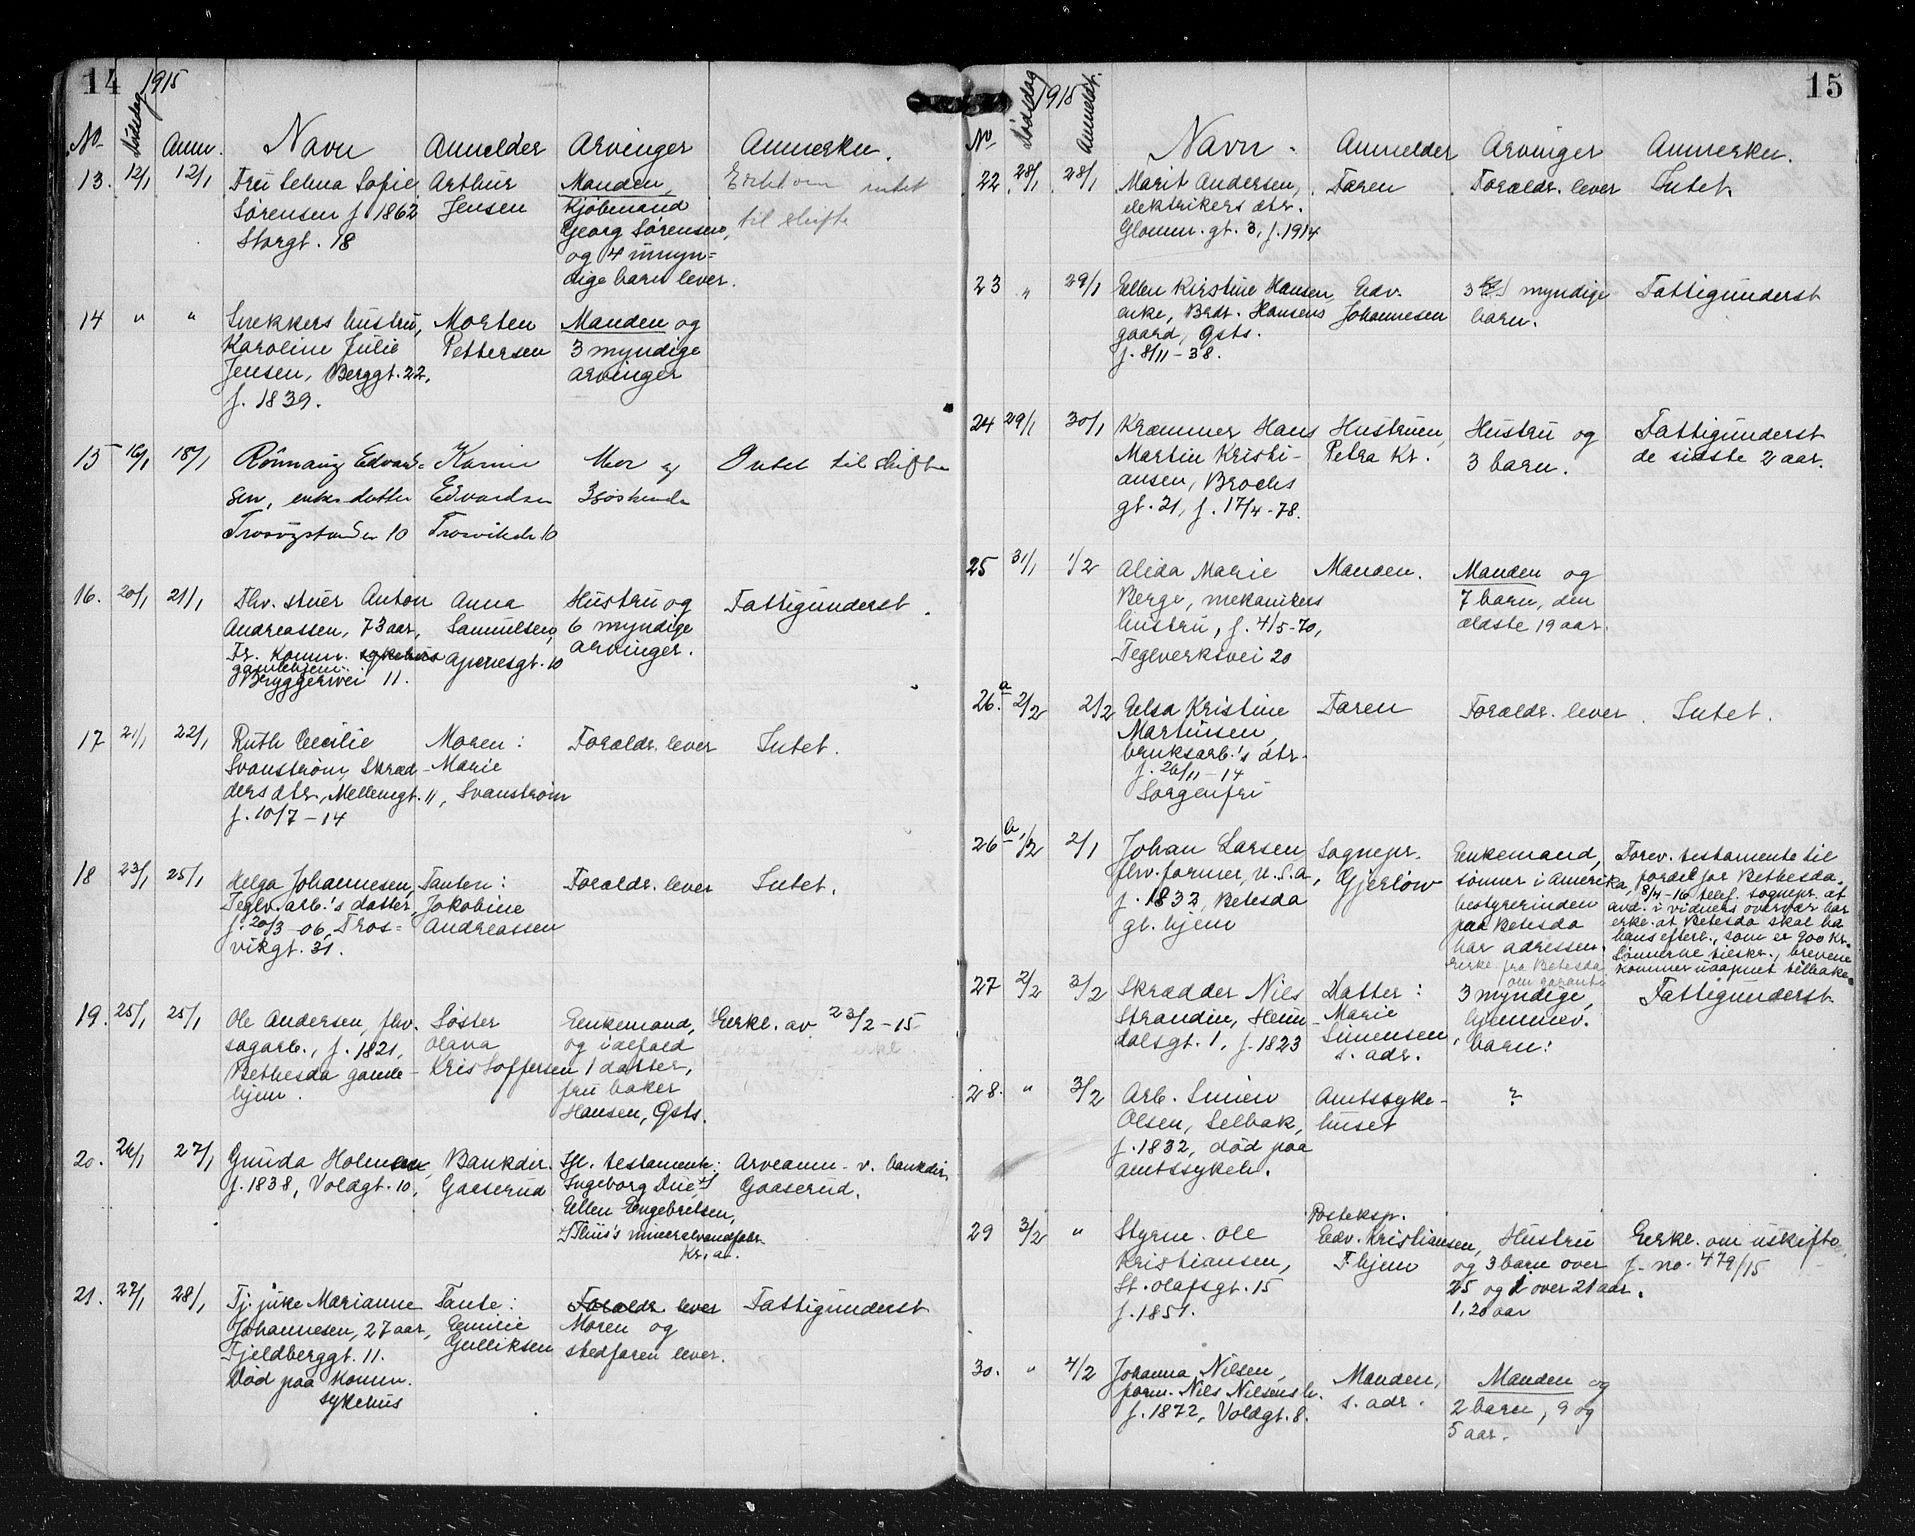 14
1915
No
Dødsdag
Anm.
Navn
Anmelder
Arvinger
Anmerkn.
13. 12/1 12/1 Fru Selma Sofie Arthur Manden, Erkl om intet
Sørensen f. 1862 Jensen Kjøbmand til skifte
Storgt. 18 Georg Sørensen,
og 4 umyn=
dige barn lever.
14 " " Snekkers hustru, Morten Manden og
Karoline Julie Pettersen 3 myndige
Jensen, Berggt. 22, arvinger
f. 1839.
15 16/1 18/1 Rønnaug Edvard- Karin Mor og Intet til skifte
sen, enkes datter Edvardsen 3 søskende
10 10
16. 20/1 21/1 Fhv. stuer Anton Anna Hustru og Fattigunderst.
Andreassen, 73 aar, Samuelsen, 6 myndige
Fr. Komm. sykehus Agnesgt. 10 arvinger.
gamlehjem.
Bryggerivei 11.
17 21/1 22/1 Ruth Cecilie Moren: Forældr. lever Intet.
Svanstrøm, Skræd- Marie
ders dtr., Mellemgt. 11, Svanstrøm
f. 10/7-14
18 23/1 25/1 Helga Johannesen, Tanten: Forældr. lever Intet.
Teglv.arb.'s datter, Jakobine
f. 20/3-06, Tros= Andreassen
vikgt. 31.
19. 25/1 25/1 Ole Andersen, fhv. Søster Enkemand, Erkl. av 23/2-15
sagarb., f. 1821, Olava og ialfald
Bethesda gamle- Kristoffersen 1 datter,
hjem. fru baker
Hansen, Gsts.
20. 26/1 27/1 Gunda Holmsen, Bankdir. Ifl. testamente: Arveanm. v. bankdir.
f. 1838, Voldgt. 10, Gaaserud Ingeborg Due, Gaaserud.
Ellen Engebretsen,
mineralvandfabr.
Kr.a.
21. 27/1 28/1 Tj.pike Marianne Tante: Forældr lever Fattigunderst
Johannesen, 27 aar, Emilie Moren og
Fjeldberggt. 11. Gulliksen stedfaren lever.
Død paa Komm.
sykehus
15
1915
No
Dødsdag
Anmeldt.
Navn.
Anmelder
Arvinger
Anmerkn.
22 28/1 28/1 Marit Andersen, Faren Forældr. lever Intet.
elektrikers dtr.
Glomm.gt. 3, f. 1914
23 " 29/1 Ellen Kirstine Hansen Edv. 3 myndige Fattigunderst
enke, Brdr. Hansens Johannesen barn.
gaard, Gsts.
f. 8/11-38.
24 29/1 30/1 Kræmmer Hans Hustruen, Hustru og Fattigunderst
Martin Kristi- Petra Kr. 3 barn. de sidste 2 aar.
ansen, Brochs
gt. 21, f. 17/4-78.
25 31/1 1/2 Alida Marie Manden. Manden og
Berge, mekanikers 7 barn, den
hustru, f. 4/5-70, ældste 19 aar.
Teglverksvei 20
26.a 2/2 2/2 Elsa Kristine Faren Forældr. lever. Intet.
Martinsen,
bruksarb.'s dtr.
f. 26/11-14
Sorgenfri
26 b. 1/2 2/1 Johan Larsen Sognepr. Enkemand, Forev. testamente til
fhv. farmer, U.S.A, Gjerløw sønner i Amerika, fordel for Bethesda.
f. 1832, Betesda bestyrerinden 8/4-16 telef. sognepr. at
gl. hjem paa Betesda avd. i vidners overvær har
har adressen. erkl. at Betesda skal ha
Erkl. fra Betesda hans efterl., som er 900 kr.
om garanti Sønnerne tilskr., brevene
kommer uaapnet tilbake.
27 2/2 3/2 Skrædder Nils Datter: 3 myndige, Fattigunderst.
Strandin, Heim- Marie hjemmev.
dalsgt. 1, f. 1823 Simensen, barn.
s. adr.
28. " 3/2 Arb. Simen Amtssyke- ?
Olsen, Selbak, huset
f. 1832, død paa
amtssykeh.
29 3/2 " Styrm. Ole Posteksp. Hustru Erkl. om uskifte,
Kristiansen, Edv. Kristiansen, og 3 barn over j. no. 479/15
St. Olafsgt. 15 F.hjem 25 og 1 over 21 aar.
f. 1851. 1, 20 aar
30. " 4/2 Johanna Nilsen, Manden, Manden og
form. Nils Nilsens h. s. adr. 2 barn, 9 og
f. 1872, Voldgt. 8. 5 aar.